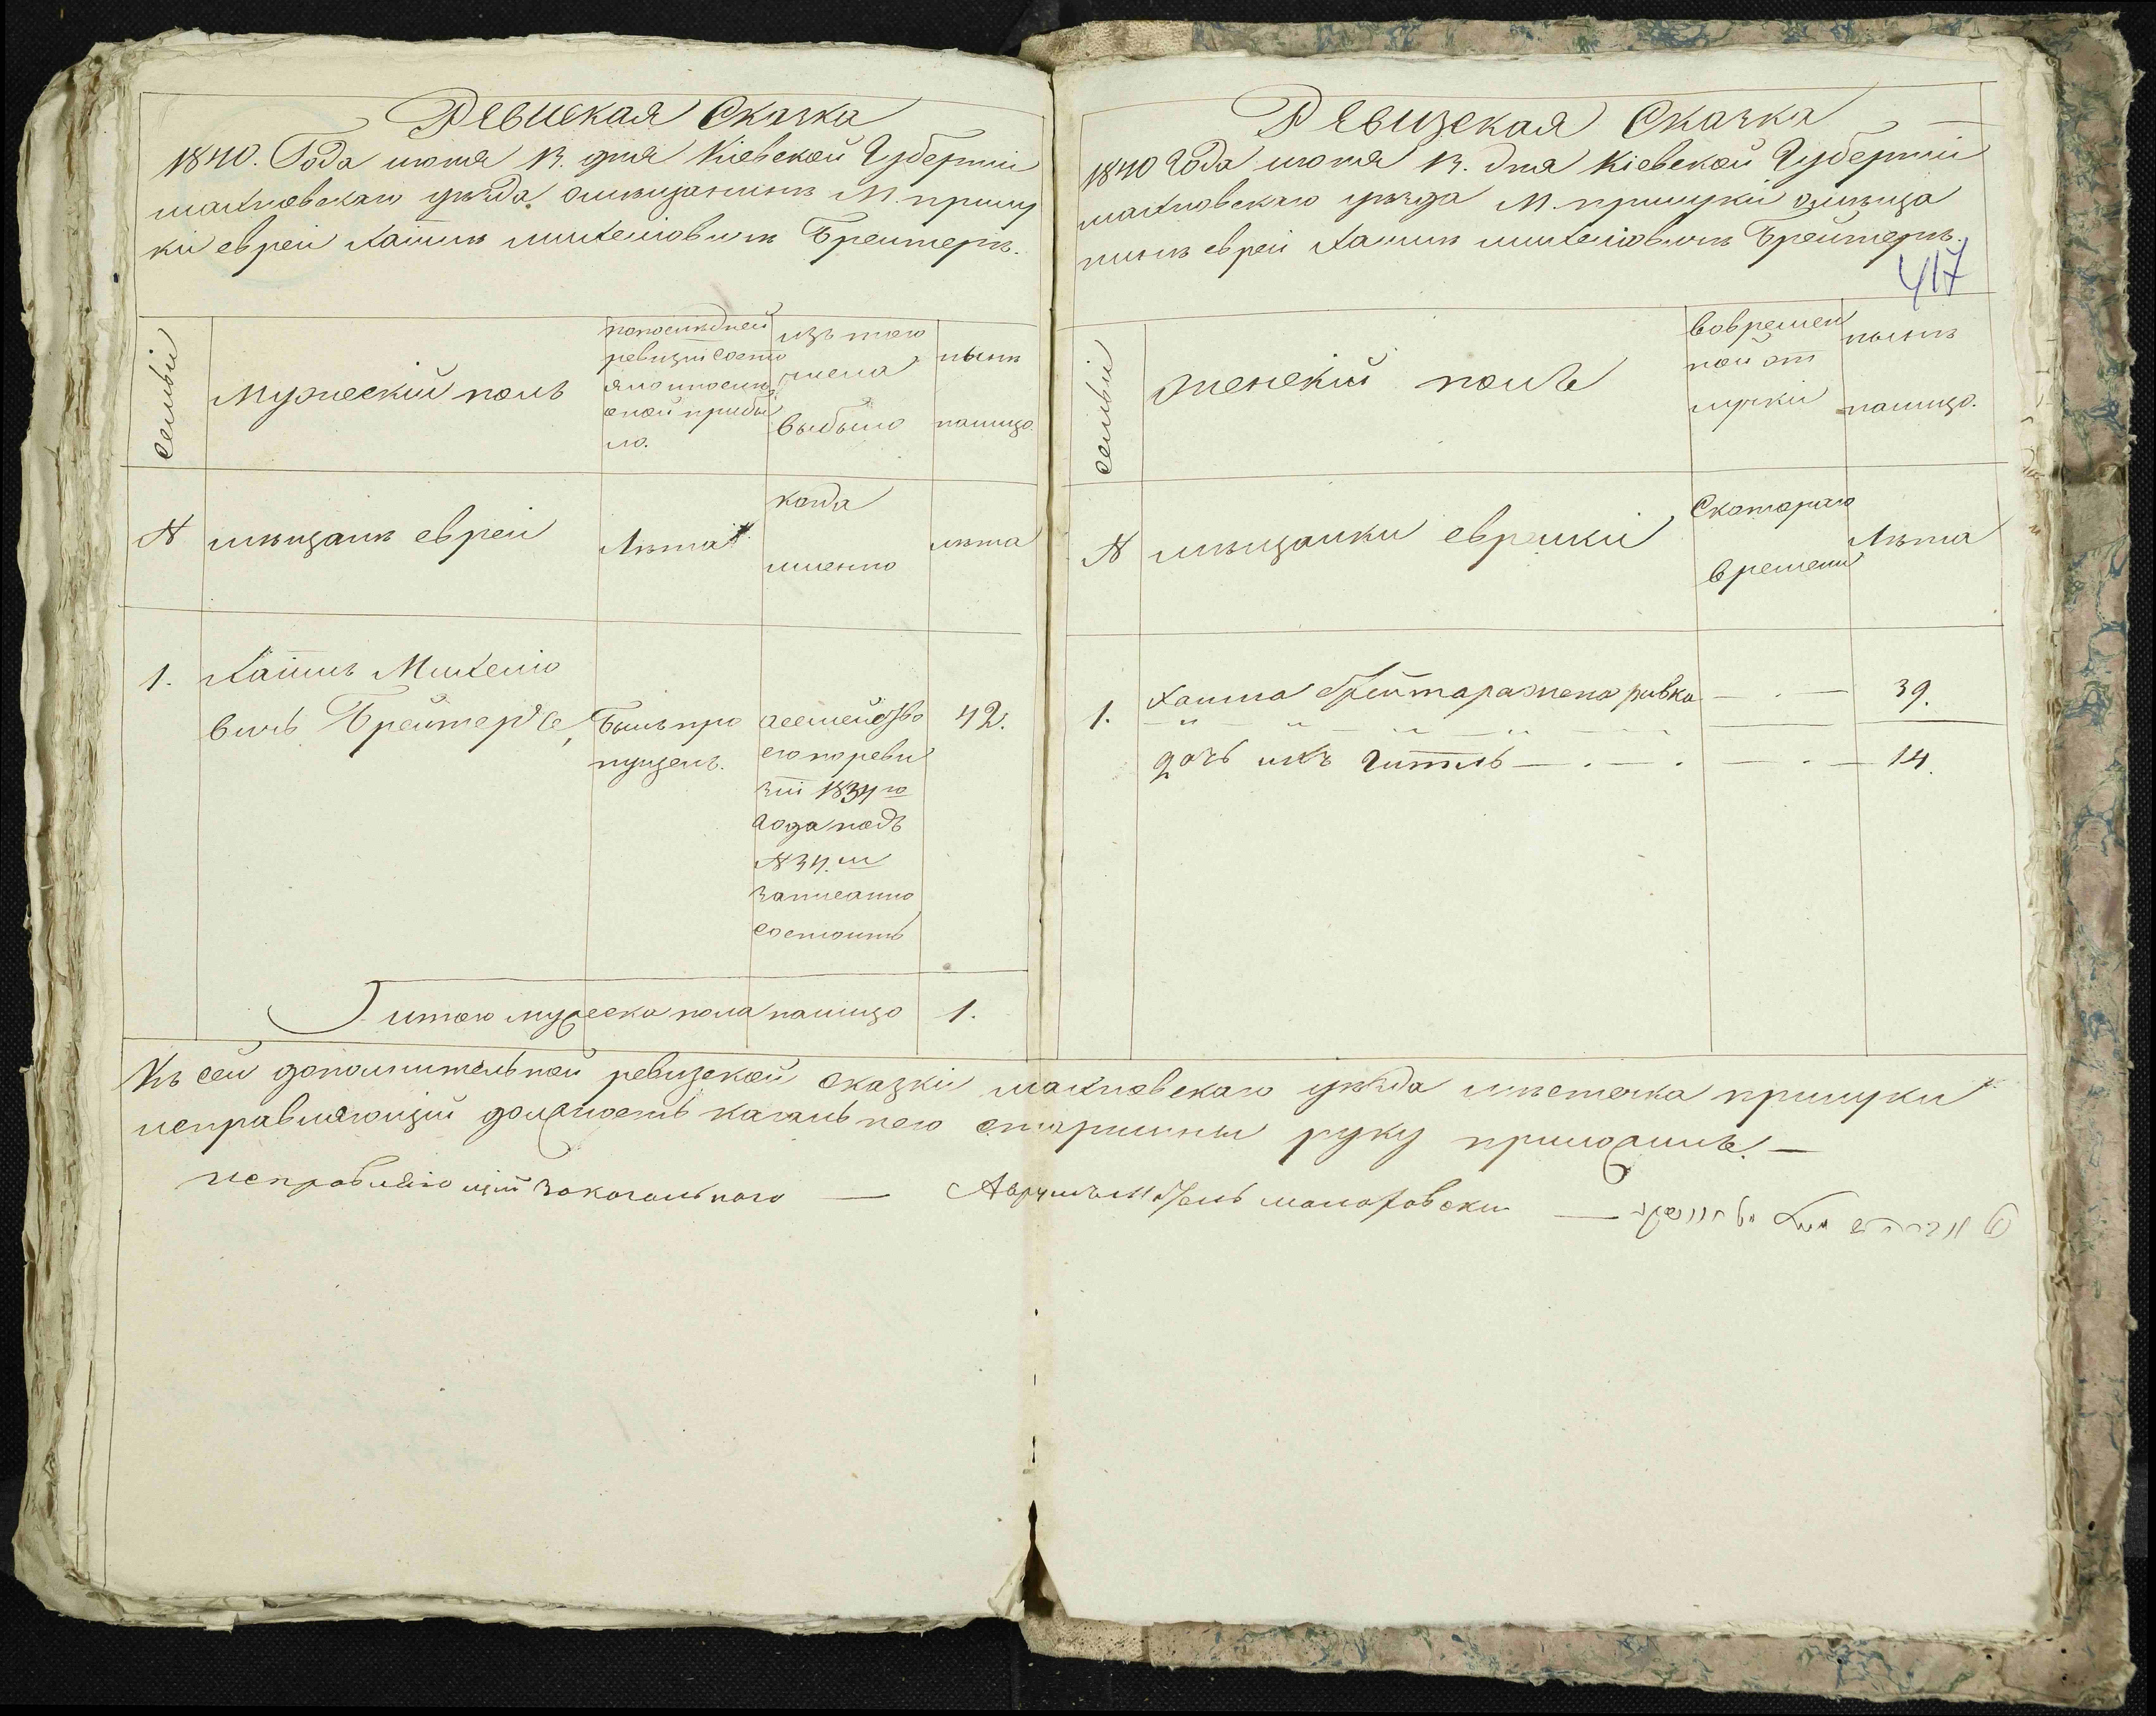 Ревиская Сказка
1840. Года июня 13. дня Кіевской Губерніи
махновскаго уѣзда омѣщанинѣ М. прилу
ки евреи Хаимѣ Михелiовичѣ Бреитерѣ.
семьи
Мужескій полъ
попоследней
ревизіи состо
яло ипосли
оной прибы
ло.
изъ того
числа
выбыло
нынѣ
налицо.
N
мѣщанѣ евреи
Лѣта
когда
имянно
лѣта
1.
Хаимъ Михелiо
вичъ Бреитеръ
Былъ про
пущенъ.
асемейство
его пореви
зіи 1834го
года подъ
N 34.
записанно
состоитъ
42.
итого мужеска пола налицо
1.
Ревизская Сказка
1840 Года июня 13. дня Кіевской Губерніи
махновскаго уѣзда М. прилуки омѣща
нинѣ евреи Хаимѣ михелiовичѣ Бреитерѣ.
417
семьи
женскій полъ
вовремен
ной от
лучки
нынѣ
налицо.
N
мѣщанки евреики
Скотораго
времени
Лѣта
1.
Хаима Брейтера жена ривка
39.
дочь ихъ Гитль
14.
Къ сей дополнительной ревизской сказки махновскаго уѣзда мѣстечка прилуки
исправляющій должность кагальнего старшины руку приложилъ. —
исправляющій закогального —